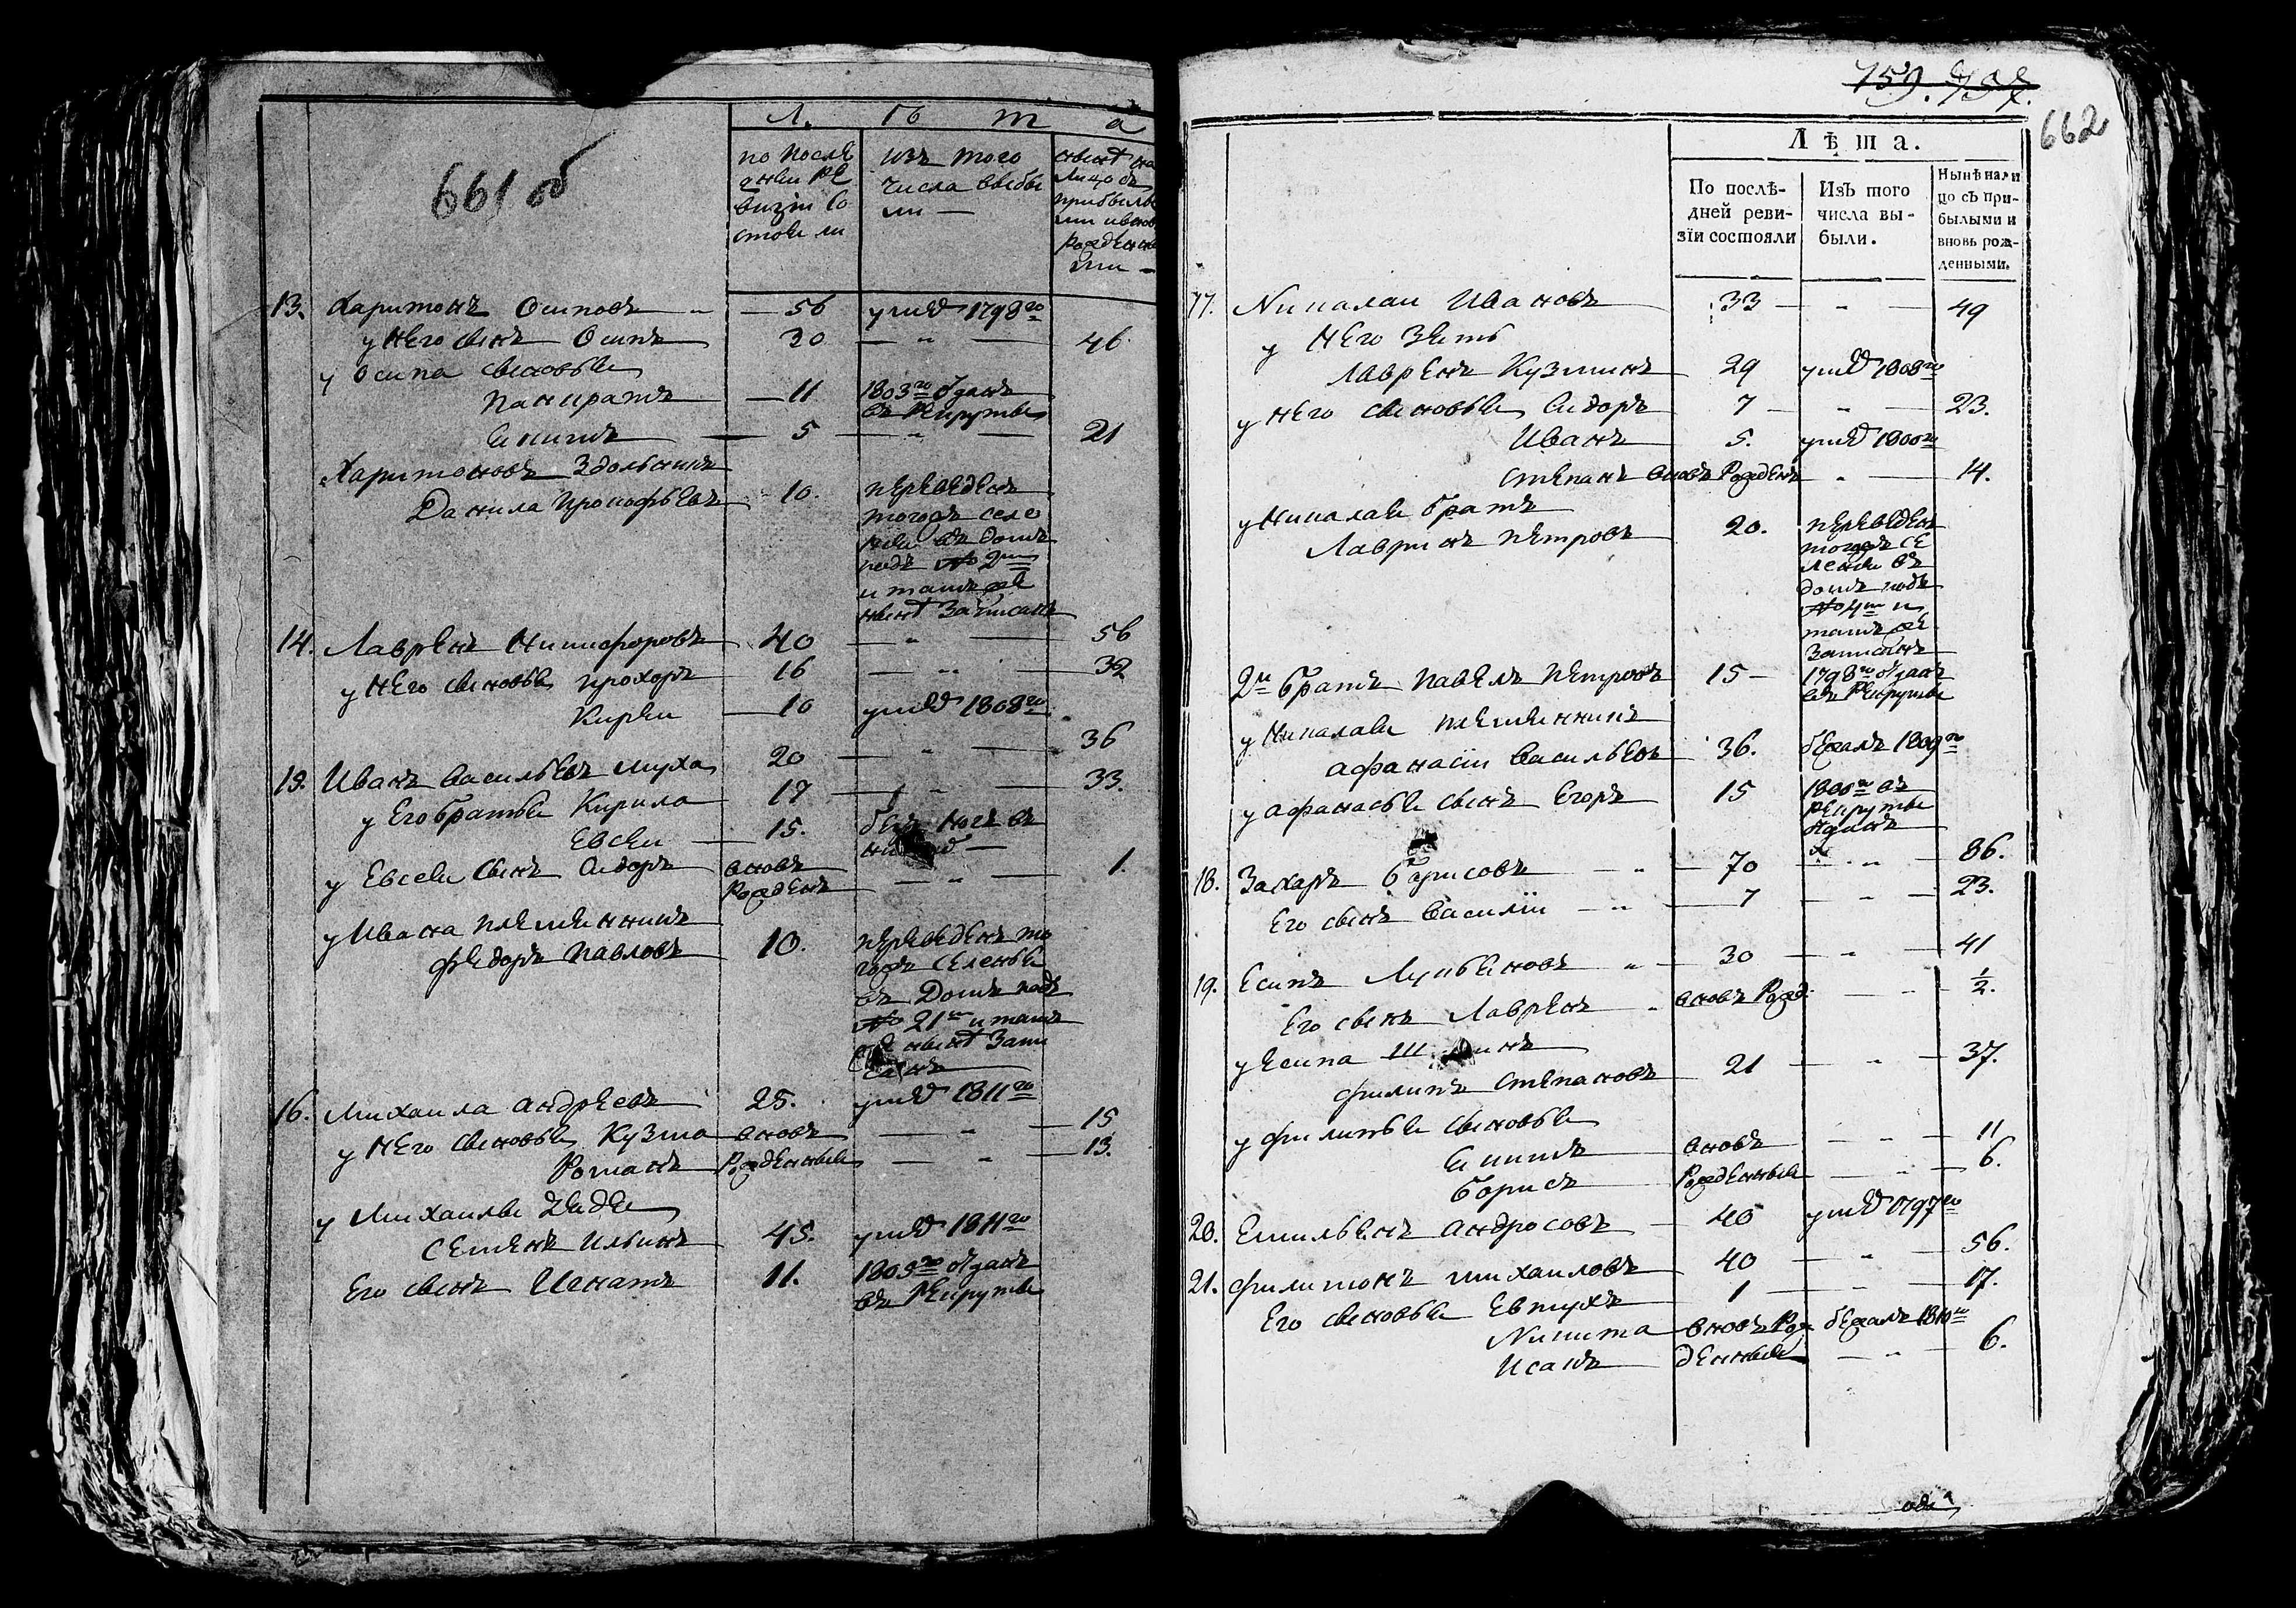 661 об
Л. ѣ т а
по послѣ изъ того нынѣ на
дней ре числа выбы лицо съ
визіи со ли — прибылы
стояли ми и вновь
рожденны
ми —
13. Харитонъ Осиповъ — 56 умеръ 1798го
у него сынъ Осипъ 30 — " — 46.
у Осипа сыновья
Панкратъ — 11 1803го отданъ
въ рекруты
Екимъ — 5 — " — 21
Харитоновъ
Данила Прокофьевъ — 10. переведенъ
тогожъ селе
нія въ домъ
подъ № 2м
и тамъ же
нынѣ записанъ
14. Лавренъ Никифоровъ 40 — " — 56
у него сыновья Прохоръ 16 — " — 32
Кирей — 10 умеръ 1808го
15. Иванъ Васильевъ Муха 20 — " — 36
у Его братья Кирила 17 — " — 33.
Евсей — 15.
у Евсея сынъ Сидоръ вновь
рожденъ — " — 1.
у Ивана племянникъ
Федоръ Павловъ 10. переведенъ то
гожъ селенья
въ Домъ подъ
№ 21м и тамъ
же нынѣ запи
санъ
16. Михаила Андреевъ 25. умеръ 1811го
у него сыновья Кузма вновь — " — 15
Романъ рожденныя — " — 13.
у Михаилы дядя
Семенъ Ильинъ 45. умеръ 1811го
Его сынъ Игнатъ 11. 1805го отданъ
въ рекруты
759. 757.
662
Лѣта.
По послѣ- Изъ того Нынѣ нали
дней реви- числа вы- цо съ при-
зіи состояли были. былыми и
вновь рож-
денными.
17. Николай Ивановъ 33 — " — 49
у него зять
Лавренъ Кузминъ 29 умеръ 1808го
у него сыновья Сидоръ 7 — " — 23.
Иванъ 5. умеръ 1800го
Степанъ вновь рожденъ " — 14.
у Николая братъ
Лавринъ Петровъ 20. переведенъ
тогожъ се
ленія въ
домъ подъ
№ 4м и
тамъ же
записанъ
2й братъ Павелъ Петровъ 15 — 1798го отданъ
въ рекруты
у Николая племянникъ
Афанасіи Васильевъ 36. бежалъ 1809го
у Афанасья сынъ Егоръ 15 1806го въ
рекруты
отданъ
18. Захаръ Борисовъ — " — 70 — " — 86.
Его сынъ Василіи — " — 7 — " — 23.
19. Есипъ Лукьяновъ " — 30 — " — 41
Его сынъ Лавренъ " вновь рожд. — " — 1/2.
у Есипа
Филипъ Степановъ 21 — " — 37.
у Филипья сыновья
Екимъ вновь — " — 11
Борисъ рожденныя — " — 6.
20. Емельянъ Андросовъ 40 умеръ 1797го
21. Филимонъ Михаиловъ 40 — " — 56.
Его сыновья Евтухъ 1 — " — 17.
Никита вновь рож бежалъ 1810го
Исакъ денныя — " — 6.